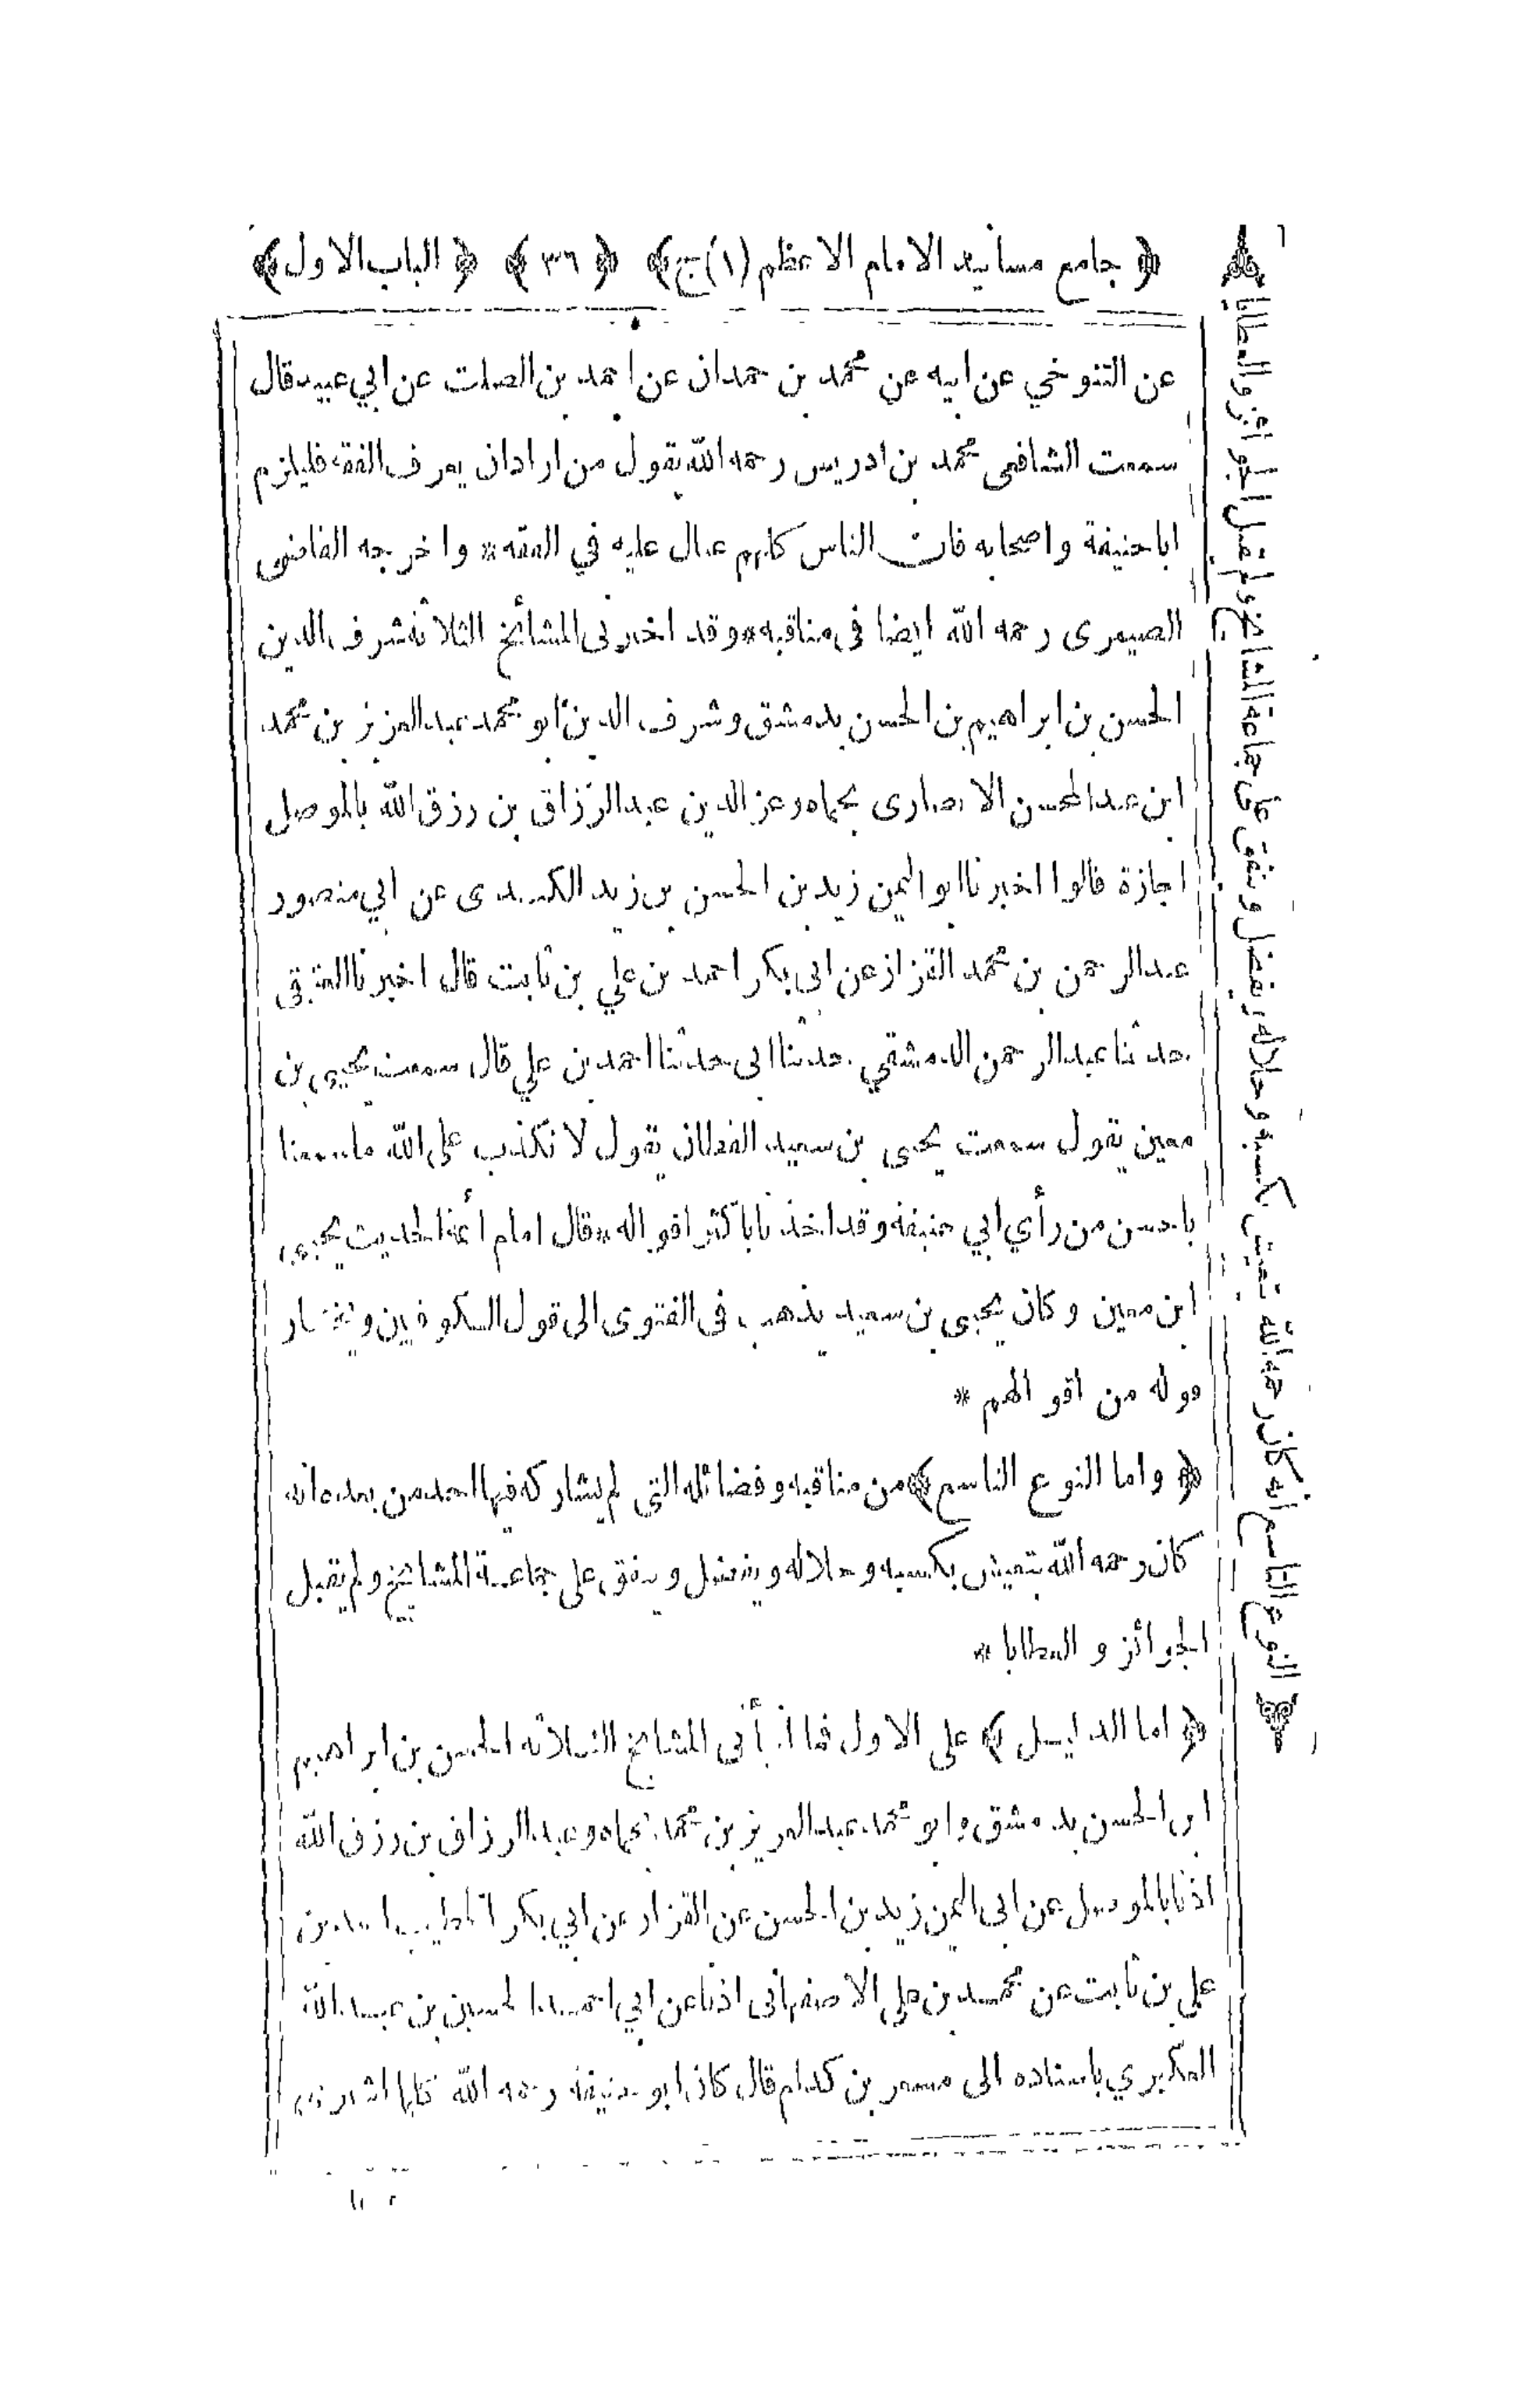 ﴿ جامع مسانيد الامام الاعظم (١) ج ﴾ ﴿ ٣٦ ﴾ ﴿ الباب الاول ﴾
عن التنوخي عن ابيه عن محمد بن حمدان عن احمد بن الصلت عن ابي عبيد قال
سمعت الشافعى محمد بن ادريس رحمه الله يقول من اراد ان يعرف الفقه فليلزم
اباحنيفة واصحابه فان الناس كلهم عيال عليه في الفقه * واخرجه القاضى
الصيمرى رحمه الله ايضا فى مناقبه * وقد اخبرنى المشائخ الثلاثة شرف الدين
الحسن بن ابراهيم بن الحسن بدمشق وشرف الدين ابو محمد عبدالعزيز بن محمد
ابن عبدالمحسن الانصارى بحماه وعز الدين عبدالرزاق بن رزق الله بالموصل
اجازة قالوا اخبرنا ابو اليمن زيد بن الحسن بن زيد الكندى عن ابي منصور
عبدالرحمن بن محمد القزاز عن ابى بكر احمد بن علي بن ثابت قال اخبرنا العتيقى
حدثنا عبدالرحمن الدمشقي حدثنا ابى حدثنا احمد بن علي قال سمعت يحيى بن
معين يقول سمعت يحيى بن سعيد القطان يقول لا نكذب على الله ما سمعنا
باحسن من رأي ابي حنيفة وقد اخذنا باكثر اقواله * قال امام أئمة الحديث يحيى
ابن معين وكان يحيى بن سعيد يذهب فى الفتوى الى قول الكوفيين ويختار
قوله من اقوالهم *
﴿ واما النوع التاسع ﴾ من مناقبه وفضائله التى لم يشاركه فيها احد من بعده انه
كان رحمه الله يتعيش بكسبه وحلاله ويفضل وينفق على جماعة المشايخ ولم يقبل
الجوائز و العطايا *
﴿ اما الدليل ﴾ على الاول فما انبأنى المشايخ الثلاثة الحسن بن ابراهيم
ابن الحسن بدمشق وابو محمد عبدالعزيز بن محمد بحماه وعبد الرزاق بن رزق الله
اذنا بالموصل عن ابى اليمن زيد بن الحسن عن القزاز عن ابي بكر الخطيب احمد بن
علي بن ثابت عن محمد بن علي الاصفهانى اذنا عن ابي احمد الحسين بن عبد الله
العكبري باسناده الى مسعر بن كدام قال كان ابو حنيفة رحمه الله كلما اشترى
النوع التاسع أنه كان رحمه الله يتعيش بكسبه وحلاله ويفضل وينفق على جماعة المشايخ ولم يقبل الجوائز والعطايا